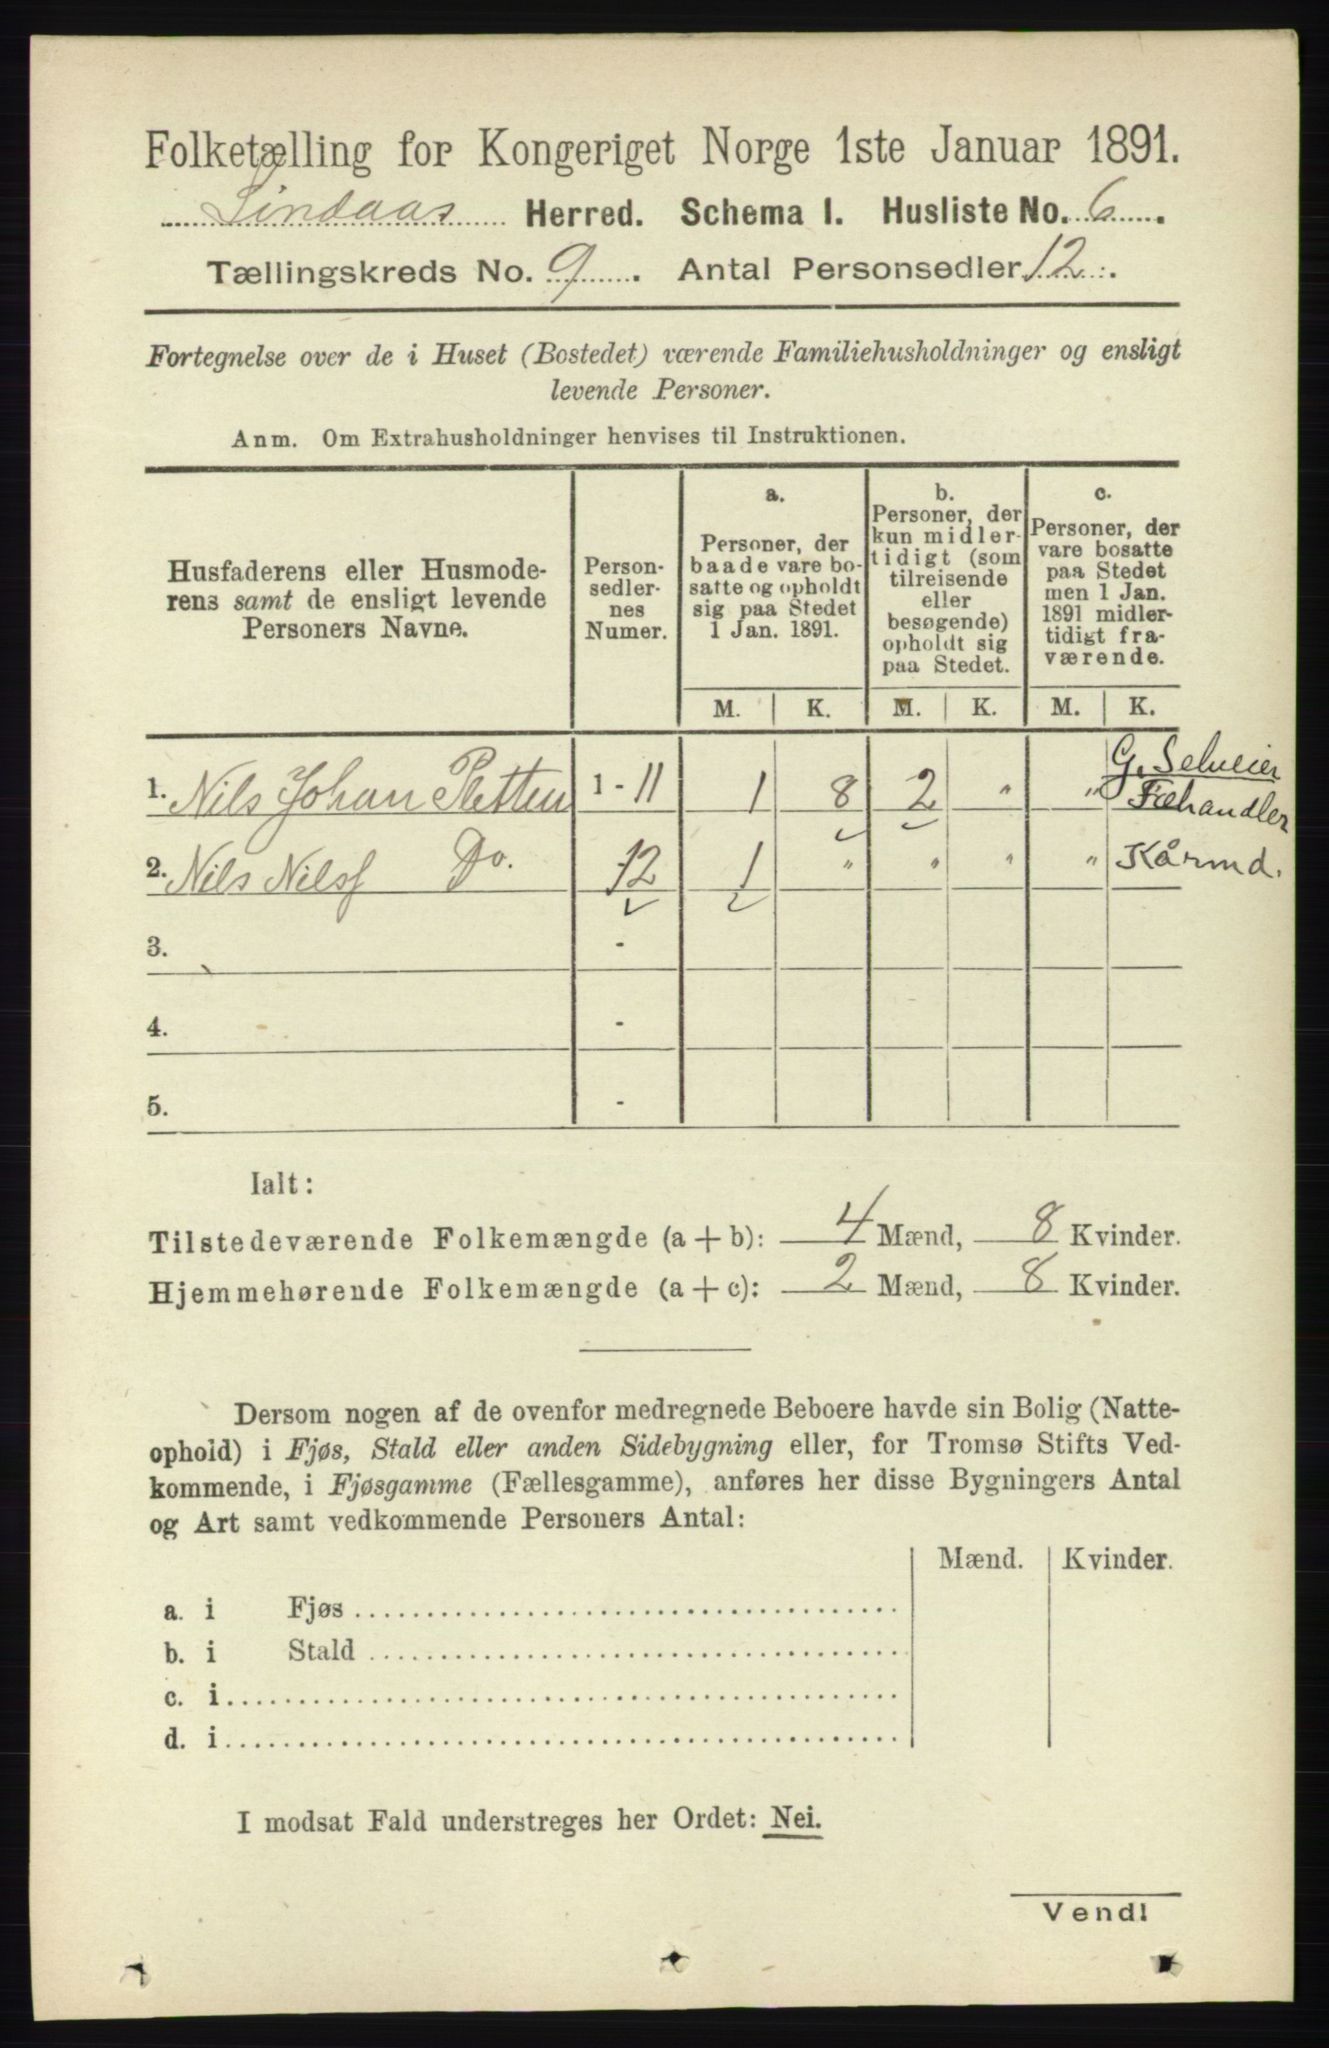 Folketælling for Kongeriget Norge 1ste Januar 1891.
Lindaas Herred. Schema I. Husliste No. 6.
Tællingskreds No. 9. Antal Personsedler 12.
Fortegnelse over de i Huset (Bostedet) værende Familiehusholdninger og ensligt
levende Personer.
Anm. Om Extrahusholdninger henvises til Instruktionen.
Husfaderens eller Husmode-
rens samt de ensligt levende
Personers Navne.
Person-
sedler-
nes
Numer.
a.
Personer, der
baade vare bo-
satte og opholdt
sig paa Stedet
1 Jan. 1891.
b.
Personer, der
kun midler-
tidigt (som
tilreisende
eller
besøgende)
opholdt sig
paa Stedet.
c.
Personer, der
vare bosatte
paa Stedet
men 1 Jan.
1891 midler-
tidigt fra-
værende.
M. K. M. K. M. K.
1. Nils Johan Pletten 1 - 11 1 8 2 " " G. Selveier
Fæhandler
2. Nils Nilsf Do. 12 1 " " " " Kårmd.
3. -
4. -
5. -
Ialt:
Tilstedeværende Folkemængde (a + b): 4 Mænd, 8 Kvinder.
Hjemmehørende Folkemængde (a + c): 2 Mænd, 8 Kvinder.
Dersom nogen af de ovenfor medregnede Beboere havde sin Bolig (Natte-
ophold) i Fjøs, Stald eller anden Sidebygning eller, for Tromsø Stifts Ved-
kommende, i Fjøsgamme (Fællesgamme), anføres her disse Bygningers Antal
og Art samt vedkommende Personers Antal:
Mænd. Kvinder.
a. i Fjøs
b. i Stald
c. i
d. i
I modsat Fald understreges her Ordet: Nei.
Vend!